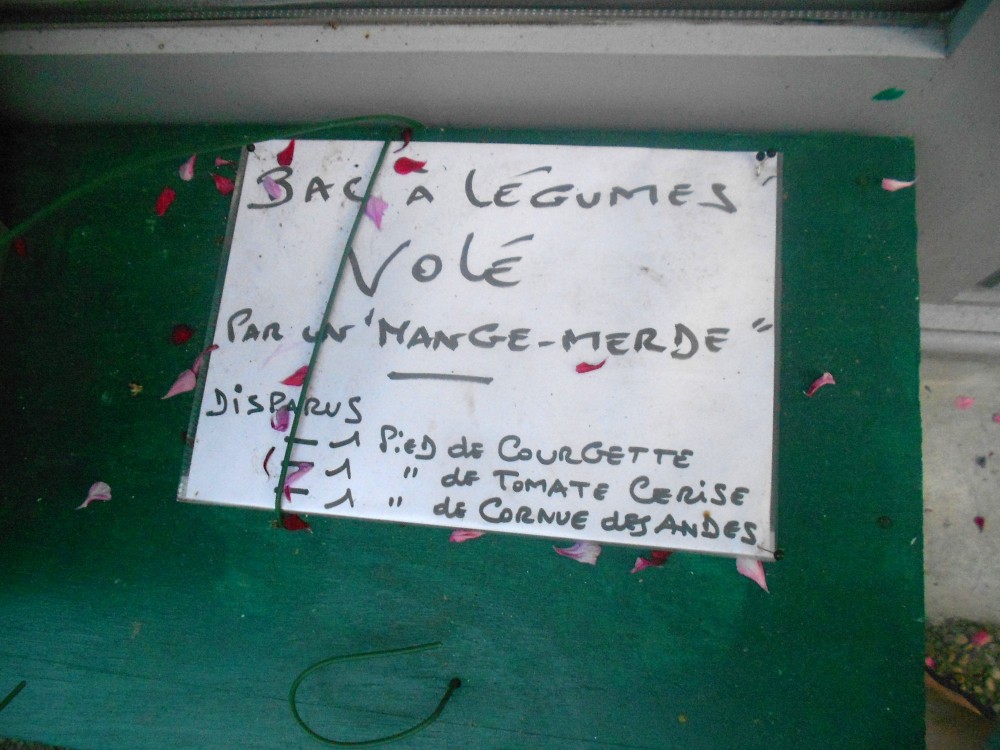 BAC À LÉGUMES
VOLÉ
PAR UN "MANGE-MERDE"
DISPARUS
- 1 PIED de COURGETTE
- 1 " de TOMATE CERISE
- 1 " de CORNUE des ANDES